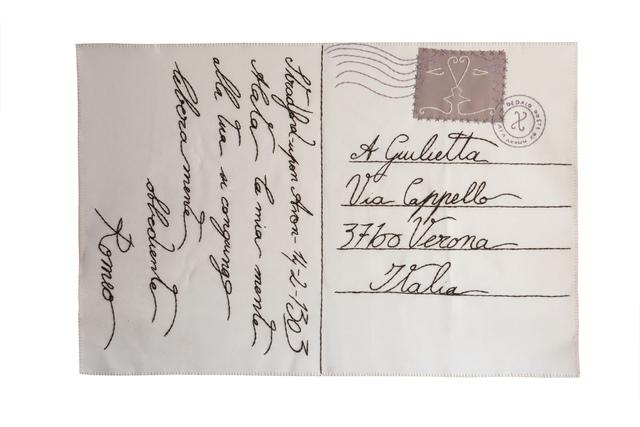 Stradford-upon Avon-14-2-1303
Alata la mia mente
alla tua si congiunge
libera mente
obbediente
Romeo
DEDALO
A Giulietta
Via Cappello
37100 Verona
Italia